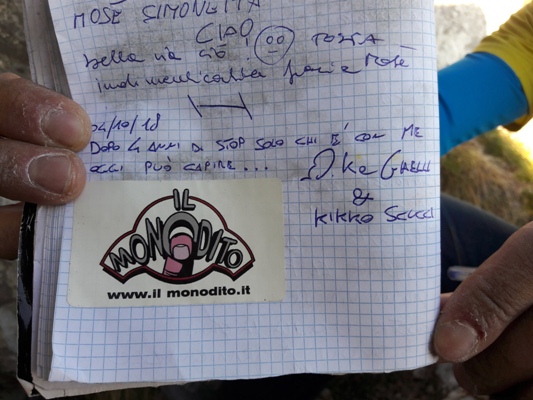 MOSÈ SIMONETTA
CIAO!
bella via ciò
TOSTA
indimenticabile grazie Mosè
04/10/18
DOPO 4 ANNI DI STOP SOLO CHI È CON ME
OGGI PUÒ CAPIRE...
&
KIKKO
IL
MONODITO
www.il monodito.it